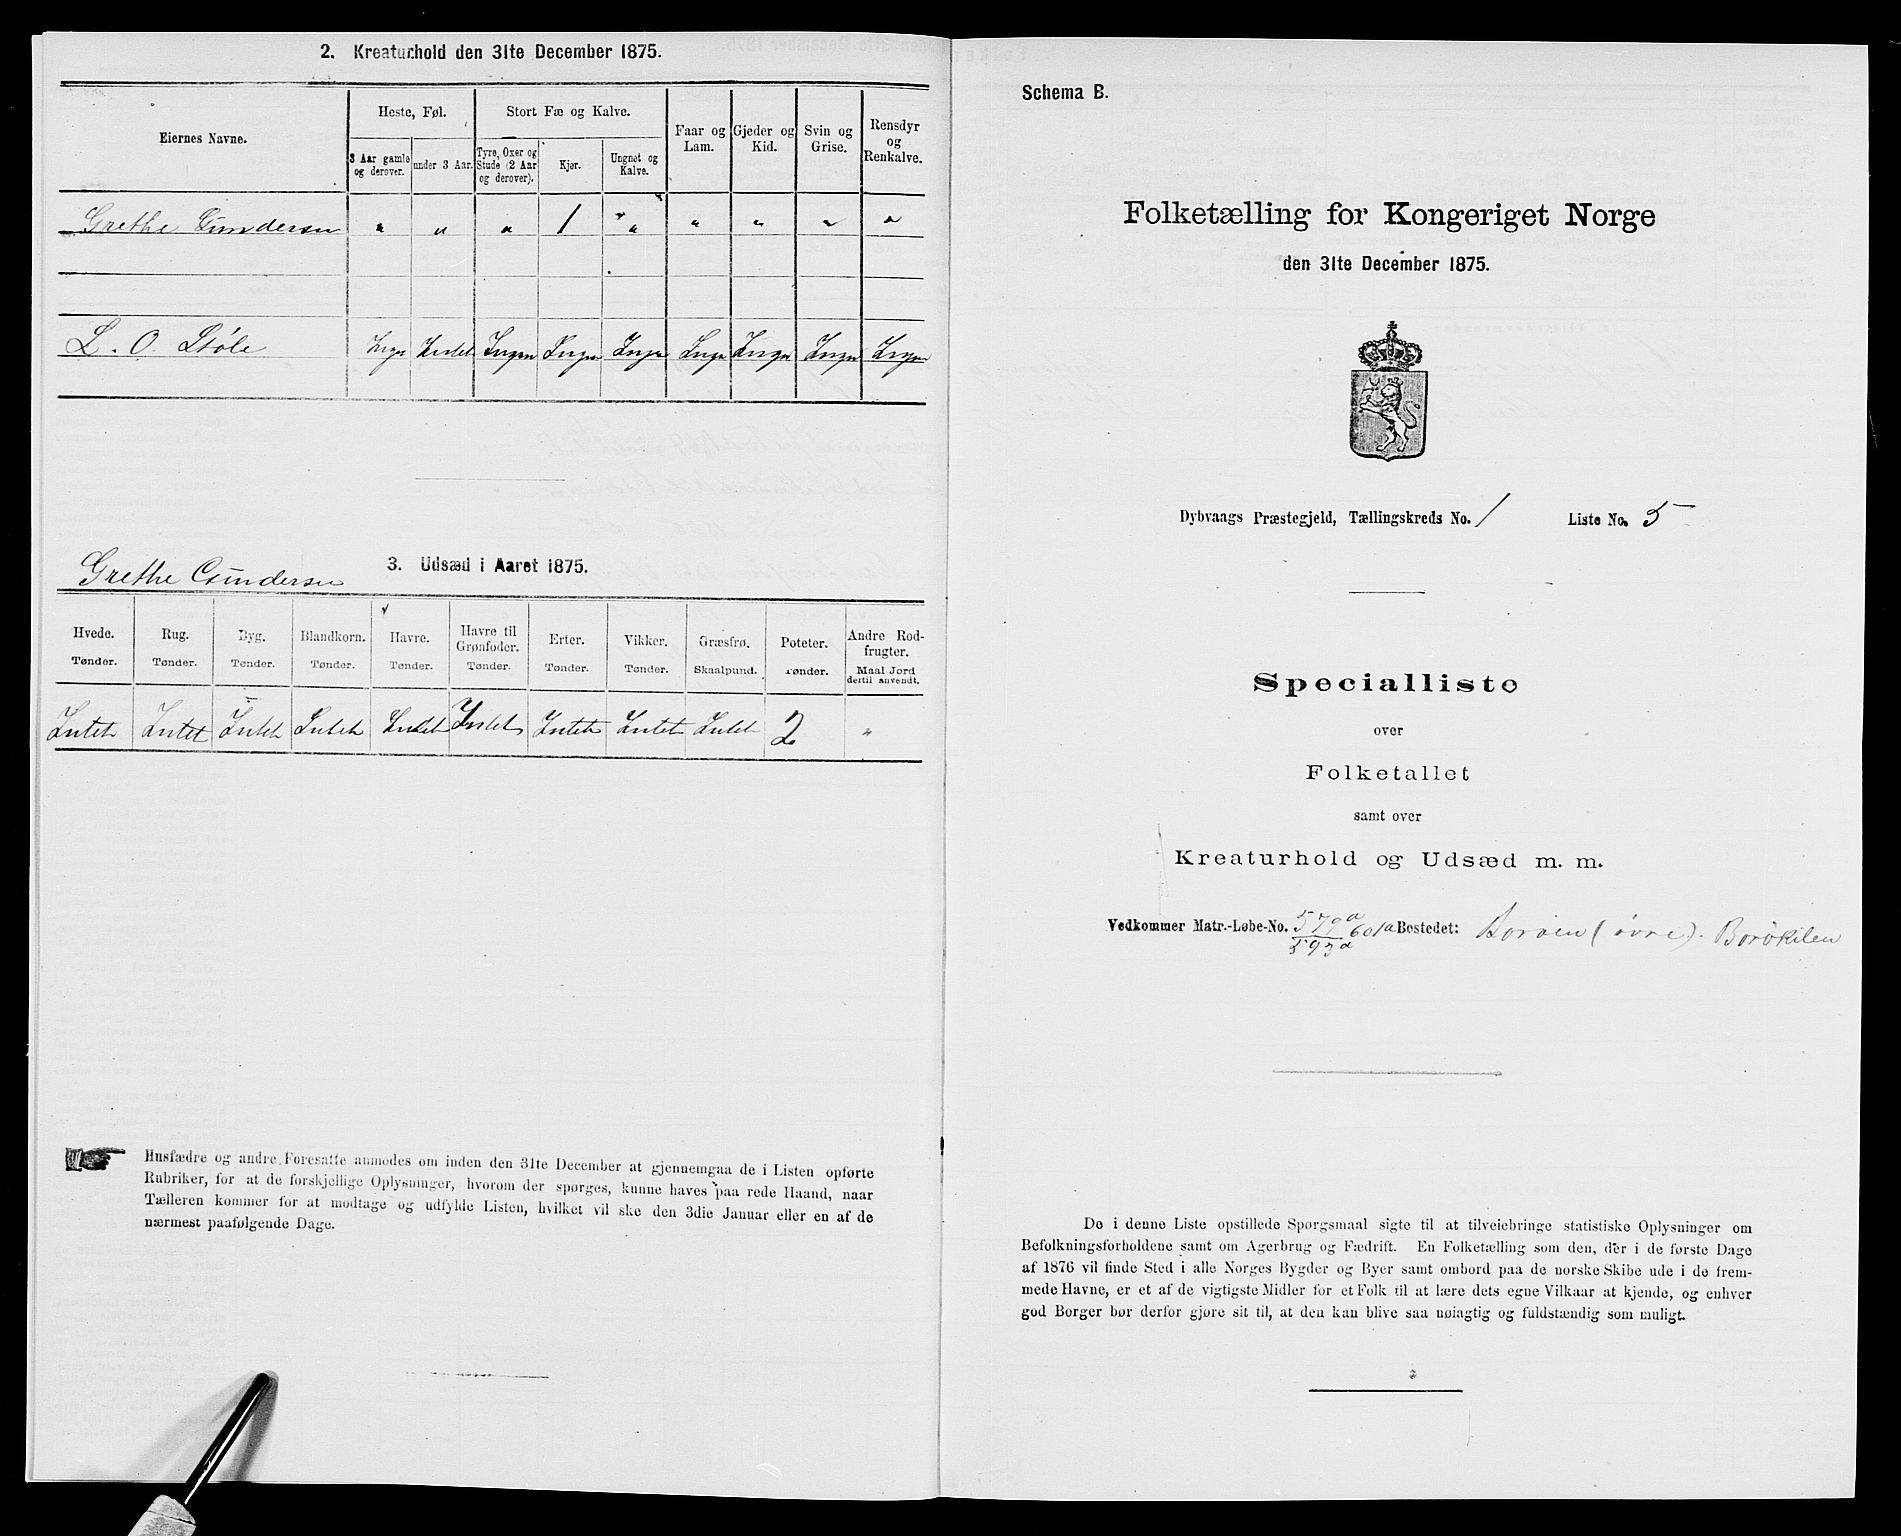 2. Kreaturhold den 31te December 1875.
Eiernes Navne.
Heste, Føl.
Stort Fæ og Kalve.
Faar og Lam.
Gjeder og Kid.
Svin og Grise.
Rensdyr og Renkalve.
3 Aar gamle og derover.
under 3 Aar.
Tyre, Oxer og Stude (2 Aar og derover).
Kjør.
Ungnøt og Kalve.
Grethe Gundersen " " " 1 " " " " "
L. O. Støle Ingen Intet Ingen Ingen Ingen Ingen Ingen Ingen Ingen
3. Udsæd i Aaret 1875.
Grethe Gundersen
Hvede. Tønder.
Rug. Tønder.
Byg. Tønder.
Blandkorn. Tønder.
Havre. Tønder.
Havre til Grønfoder. Tønder.
Erter. Tønder.
Vikker. Tønder.
Græsfrø. Skaalpund.
Poteter. Tønder.
Andre Rodfrugter. Maal Jord dertil anvendt.
Intet Intet Intet Intet Intet Intet Intet Intet Intet 2 "
Husfædre og andre Foresatte anmodes om inden den 31te December at gjennemgaa de i Listen opførte
Rubriker, for at de forskjellige Oplysninger, hvorom der spørges, kunne haves paa rede Haand, naar
Tælleren kommer for at modtage og udfylde Listen, hvilket vil ske den 3die Januar eller en af de
nærmest paafølgende Dage.
Schema B.
Folketælling for Kongeriget Norge
den 31te December 1875.
Dybvaags Præstegjeld, Tællingskreds No. 1 Liste No. 5
Specialliste
over
Folketallet
samt over
Kreaturhold og Udsæd m. m.
Vedkommer Matr.-Løbe-No. 579a 593a 601a Bostedet: Borøen (øvre). Borøkilen
De i denne Liste opstillede Spørgsmaal sigte til at tilveiebringe statistiske Oplysninger om
Befolkningsforholdene samt om Agerbrug og Fædrift. En Folketælling som den, der i de første Dage
af 1876 vil finde Sted i alle Norges Bygder og Byer samt ombord paa de norske Skibe ude i de frem-
mede Havne, er et af de vigtigste Midler for et Folk til at lære dets egne Vilkaar at kjende, og enhver
god Borger bør derfor gjøre sit til, at den kan blive saa nøiagtig og fuldstændig som muligt.